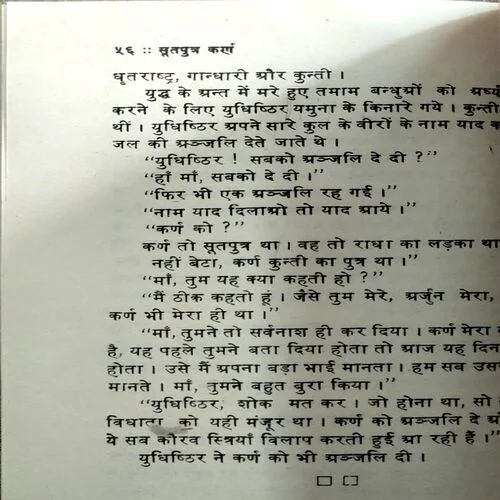 ५६ :: सूतपुत्र कर्ण
धृतराष्ट्र, गान्धारी और कुन्ती ।
युद्ध के अन्त में मरे हुए तमाम बन्धुओं को
करने के लिए युधिष्ठिर यमुना के किनारे गये । कुन्ती
थीं । युधिष्ठिर अपने सारे कुल के वीरों के नाम याद
जल की अञ्जलि देते जाते थे ।
“युधिष्ठिर ! सबको अञ्जलि दे दी ?”
“हाँ माँ, सबको दे दी ।”
“फिर भी एक अञ्जलि रह गई ।”
“नाम याद दिलाओ तो याद आये ।”
“कर्ण को ?”
कर्ण तो सूतपुत्र था । वह तो राधा का लड़का था
नहीं बेटा, कर्ण कुन्ती का पुत्र था ।”
“माँ, तुम यह क्या कहती हो ?”
“मैं ठीक कहती हूं । जैसे तुम मेरे, अर्जुन मेरा,
कर्ण भी मेरा ही था ।”
“माँ, तुमने तो सर्वनाश ही कर दिया । कर्ण मेरा
है, यह पहले तुमने बता दिया होता तो आज यह दिन
होता । उसे मैं अपना बड़ा भाई मानता । हम सब
मानते । माँ, तुमने बहुत बुरा किया ।”
“युधिष्ठिर, शोक मत कर । जो होना था, सो
विधाता को यही मंजूर था । कर्ण को अञ्जलि दे
ये सब कौरव स्त्रियाँ विलाप करती हुई आ रही हैं ।”
युधिष्ठिर ने कर्ण को भी अञ्जलि दी ।